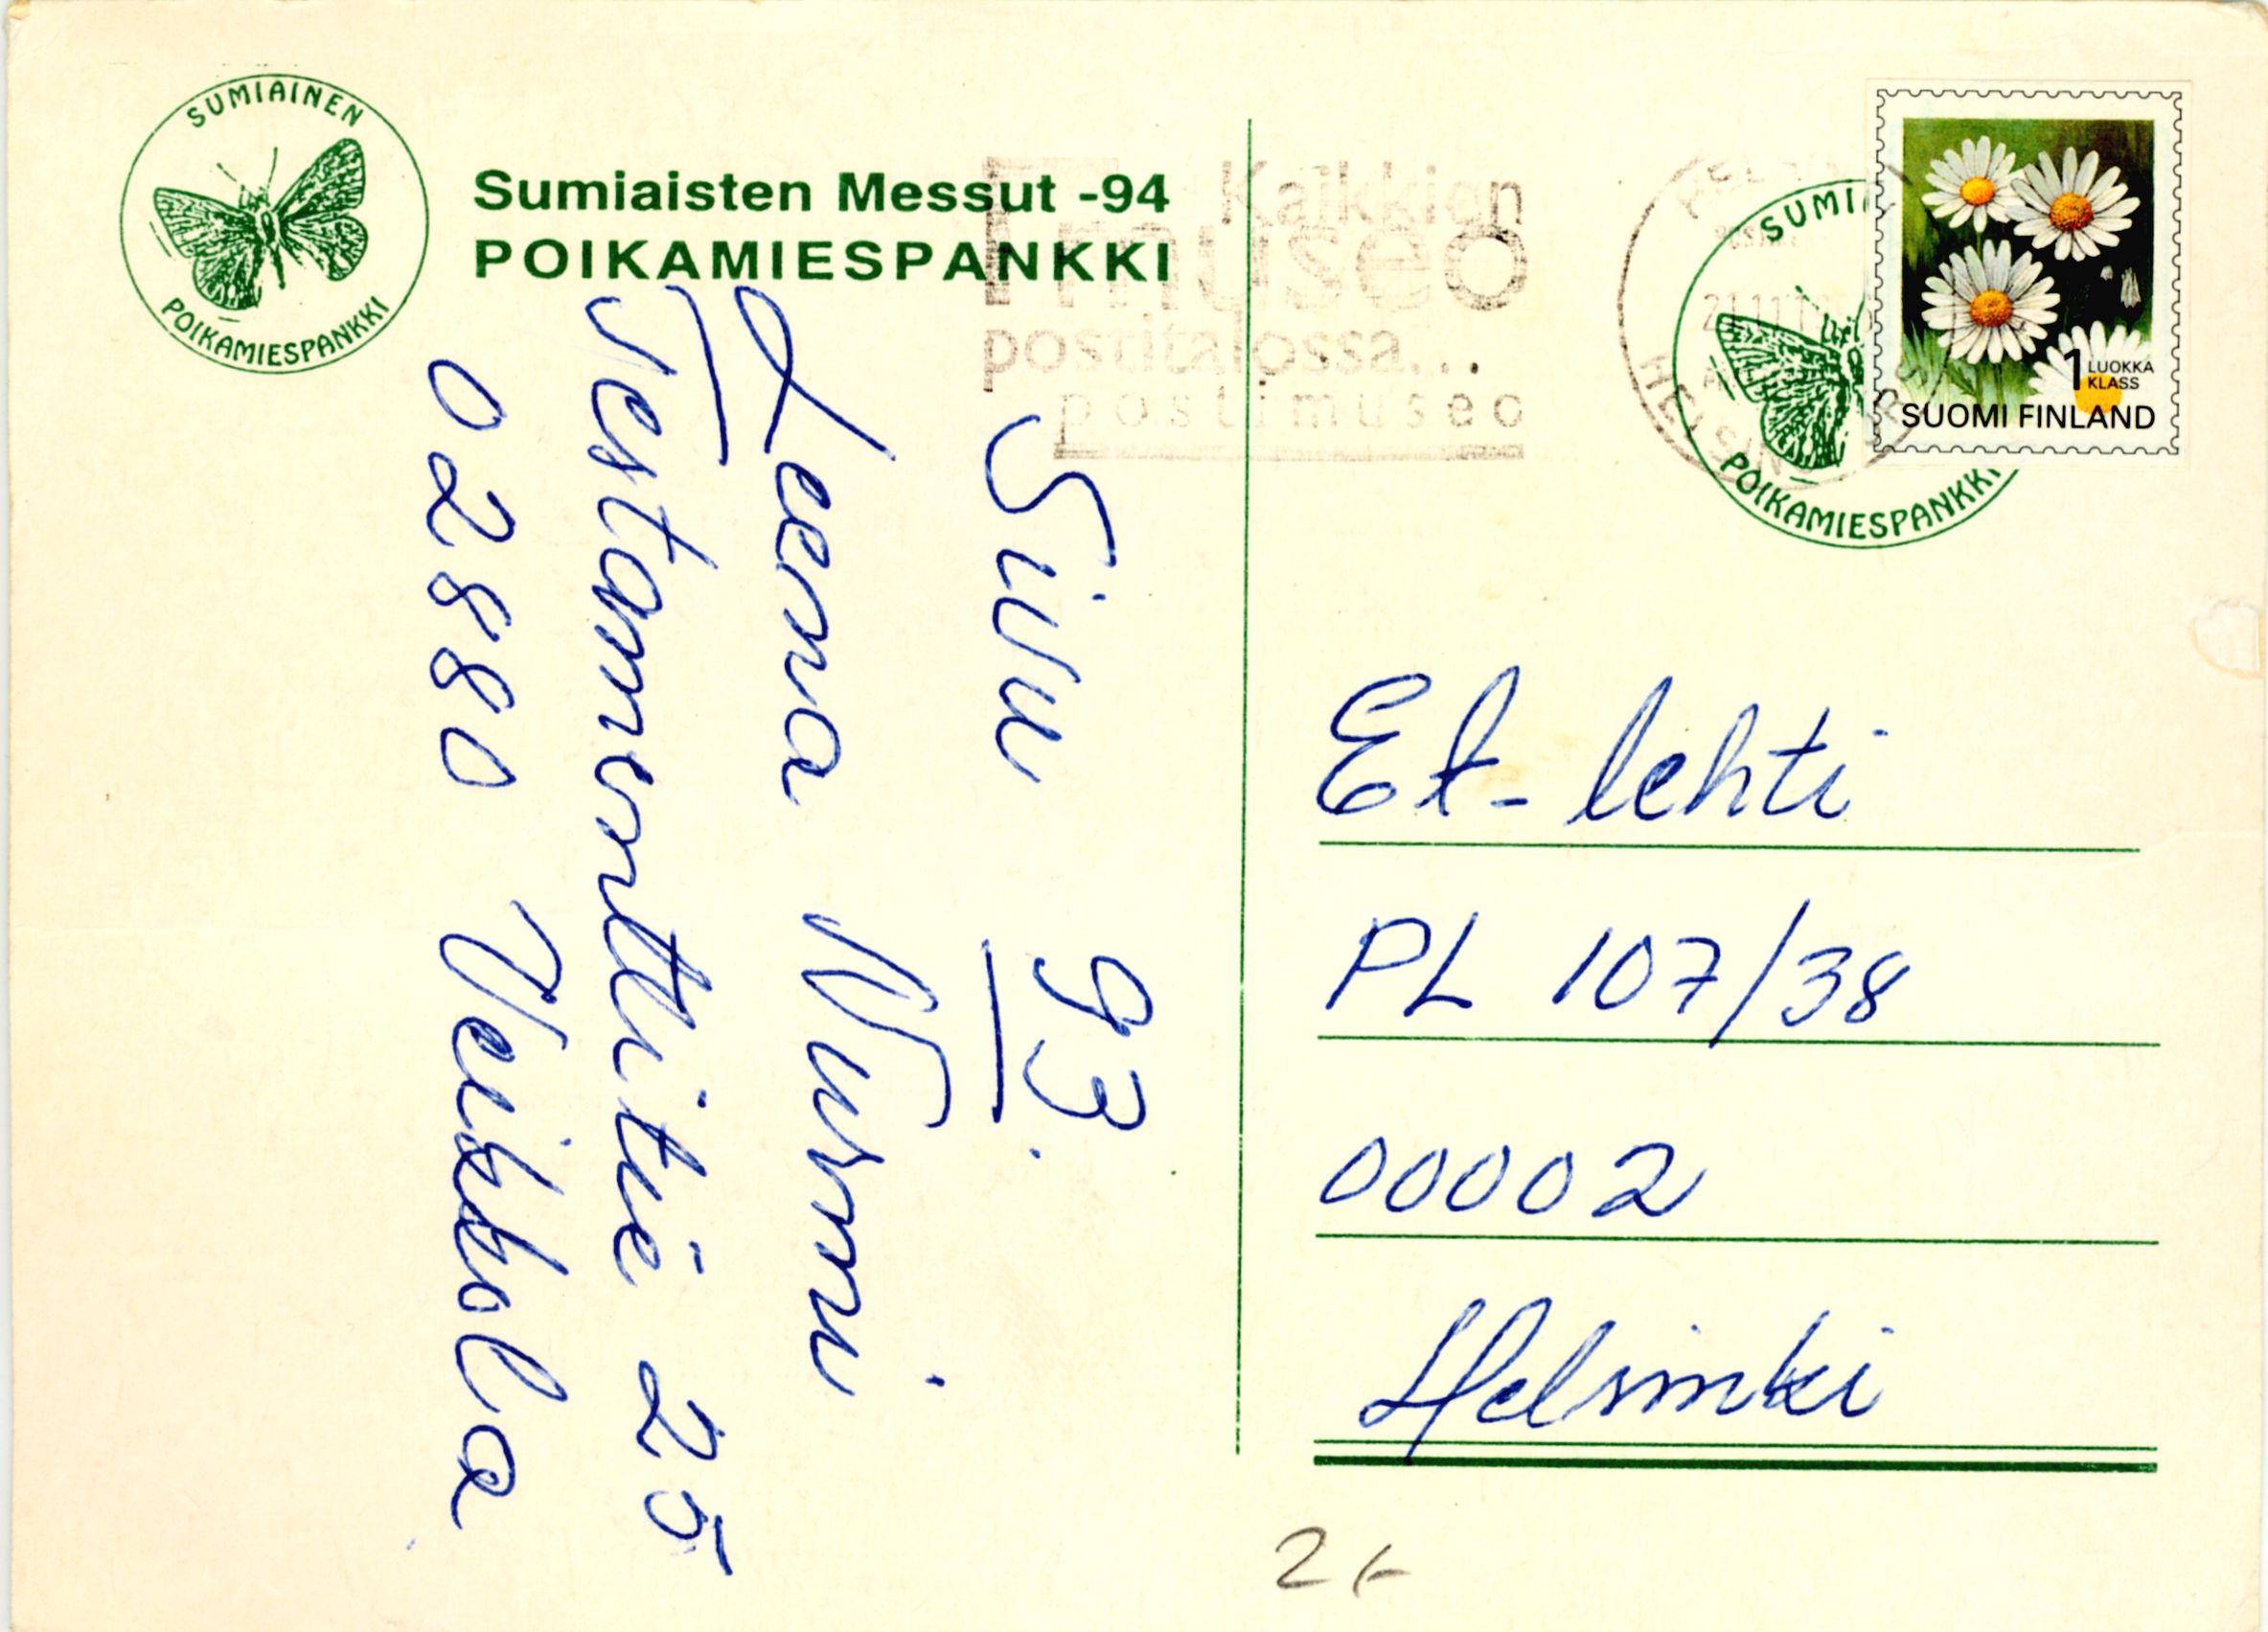 SUMIAINEN
POIKAMIESPANKKI
Sumiaisten Messut -94
POIKAMIESPANKKI
Sivu 93.
Leena Nurmi
Testamenttitie 25
02880 Veikkola
Kaikkien
museo
postitalossa...
postimuseo
SUMI
POIKAMIESPANKKI
1 LUOKKA
KLASS
SUOMI FINLAND
Et-lehti
PL 107/38
00002
Helsinki